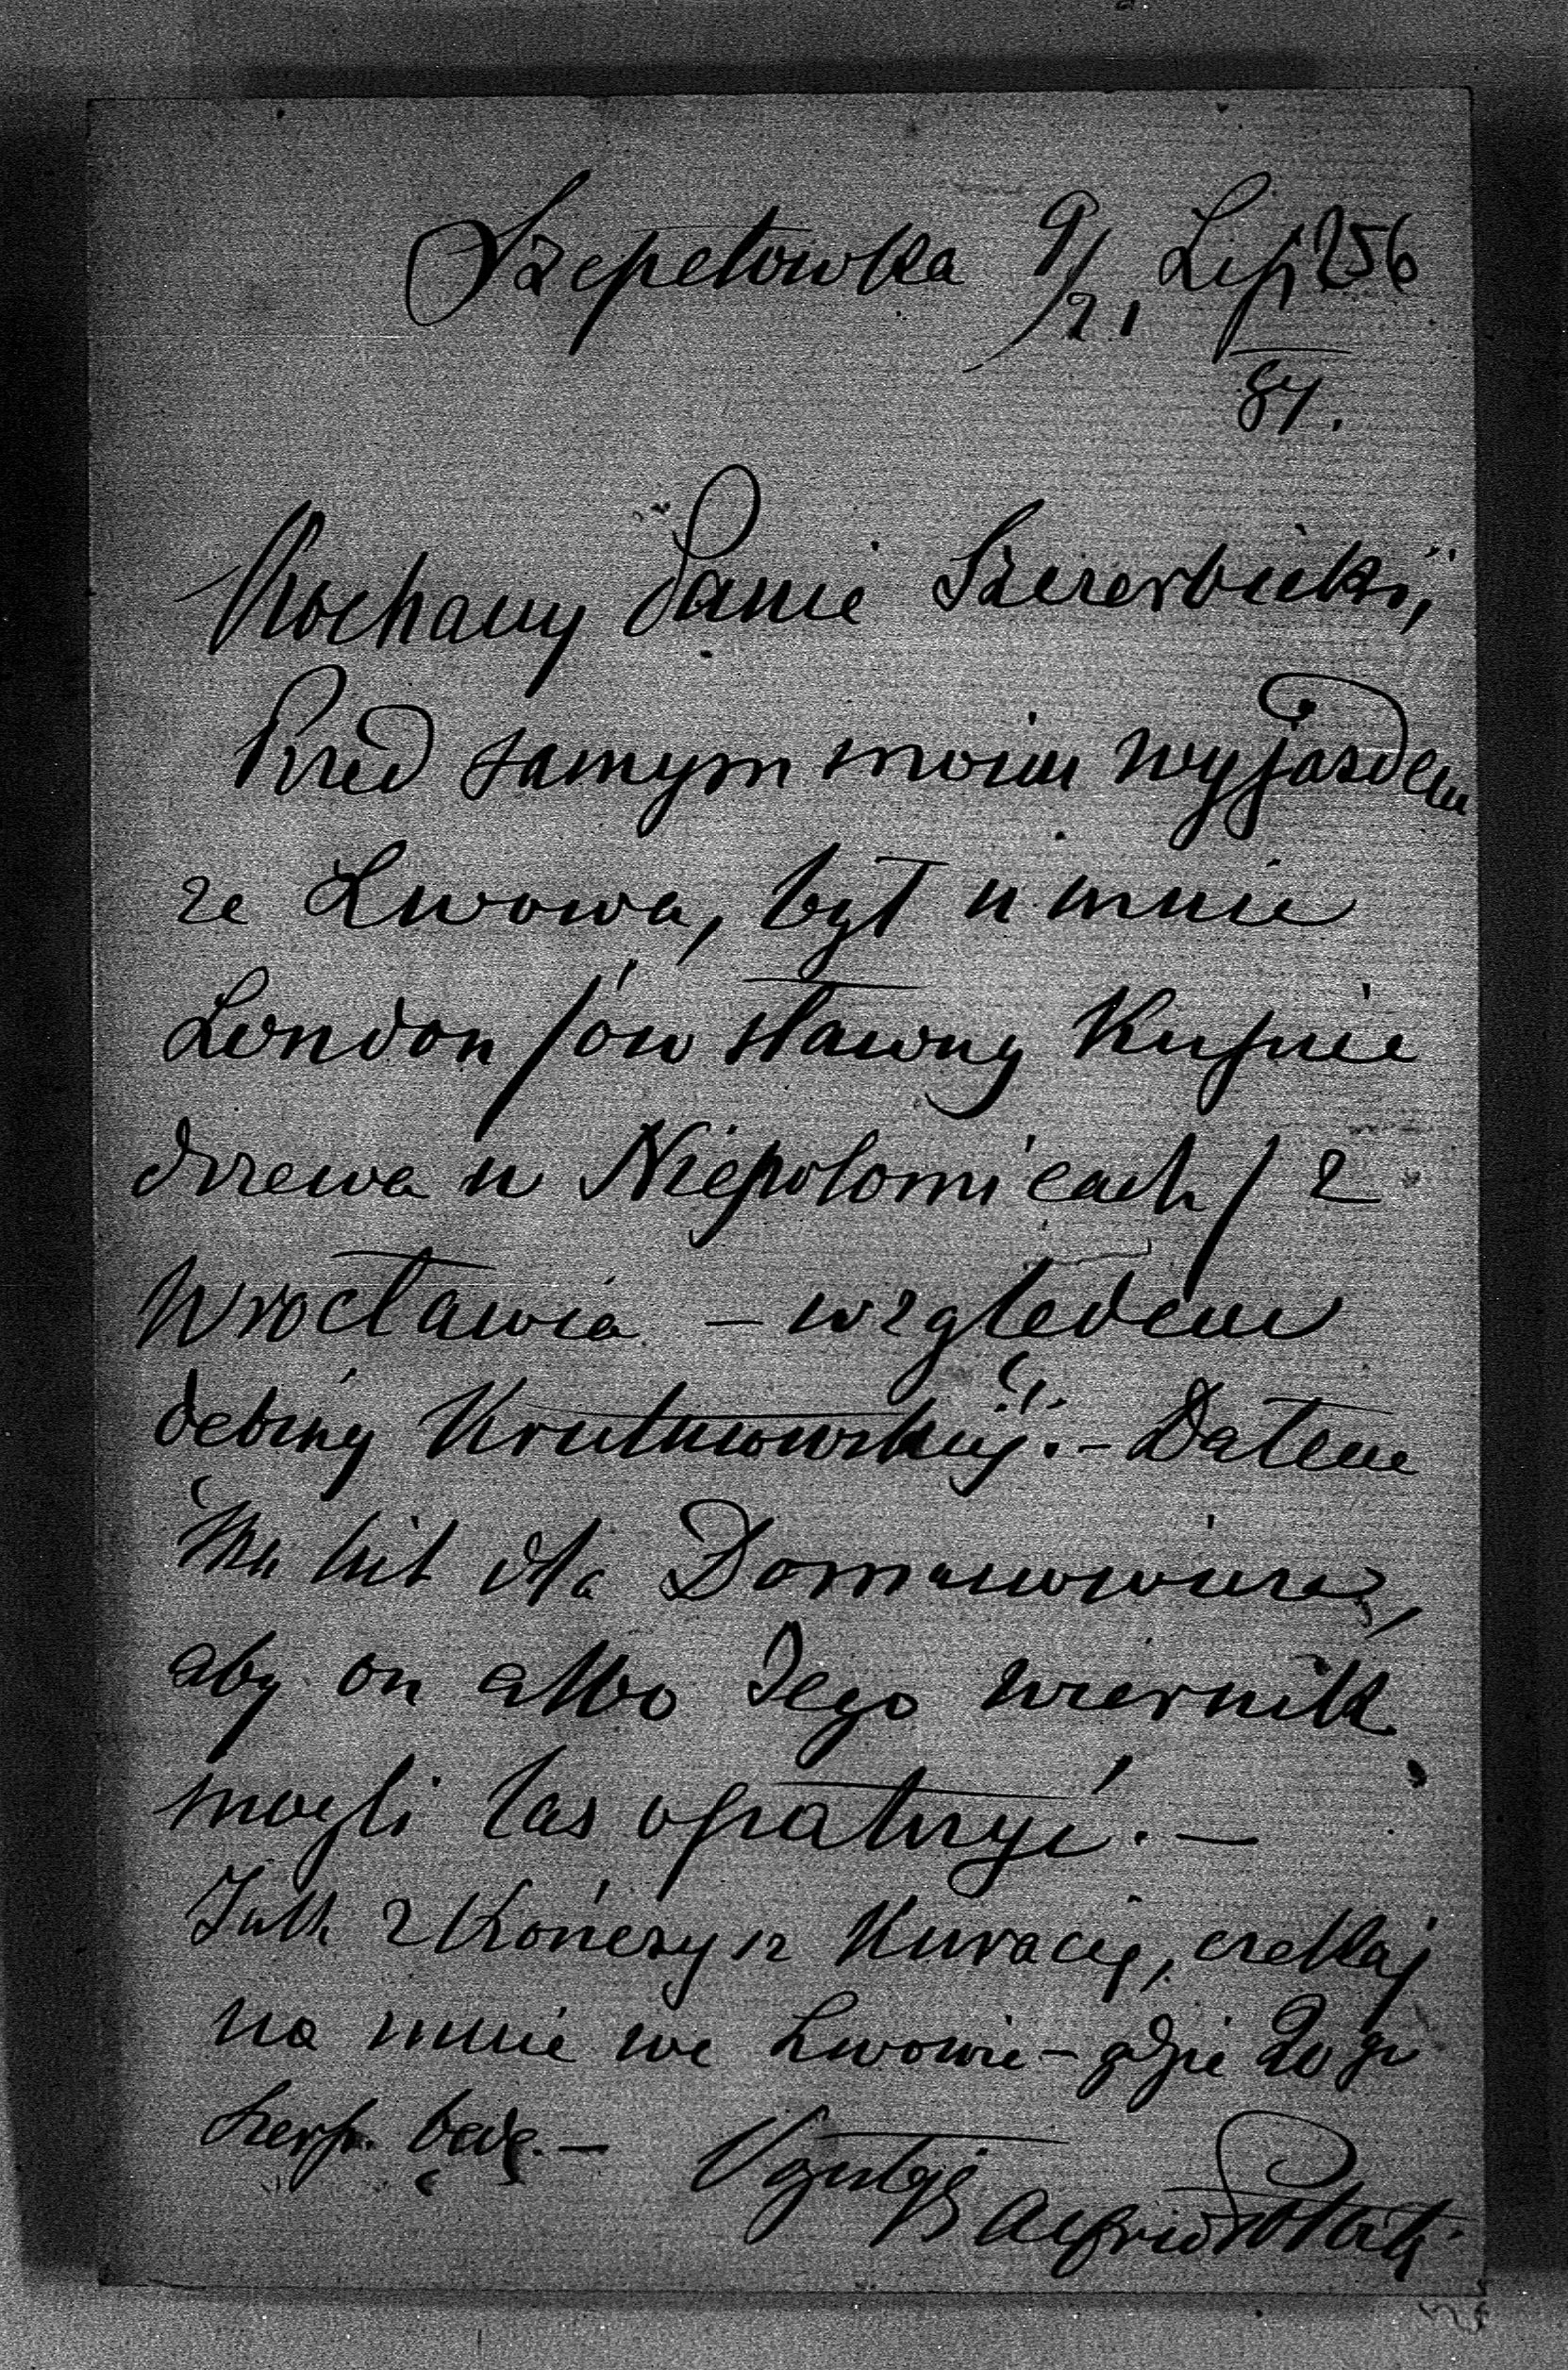 Szepetowka 9/21 Lip 256
84.
Kochany Panie Szczerbicki,
Przed samym moim wyjazdem
ze Lwowa, był u mnie
London / ów sławny kupiec
drzewa w Niepolomicach / z
Wrocławia – względem
debiny :– Dałem
mu list dla
aby on albo Jego wiernik
mogli las opatrzyć. –
Jak zkończysz kuracię, czekaj
na mnie we Lwowie – gdzie 20 go
Sierp. będę. –
Alfred Potocki